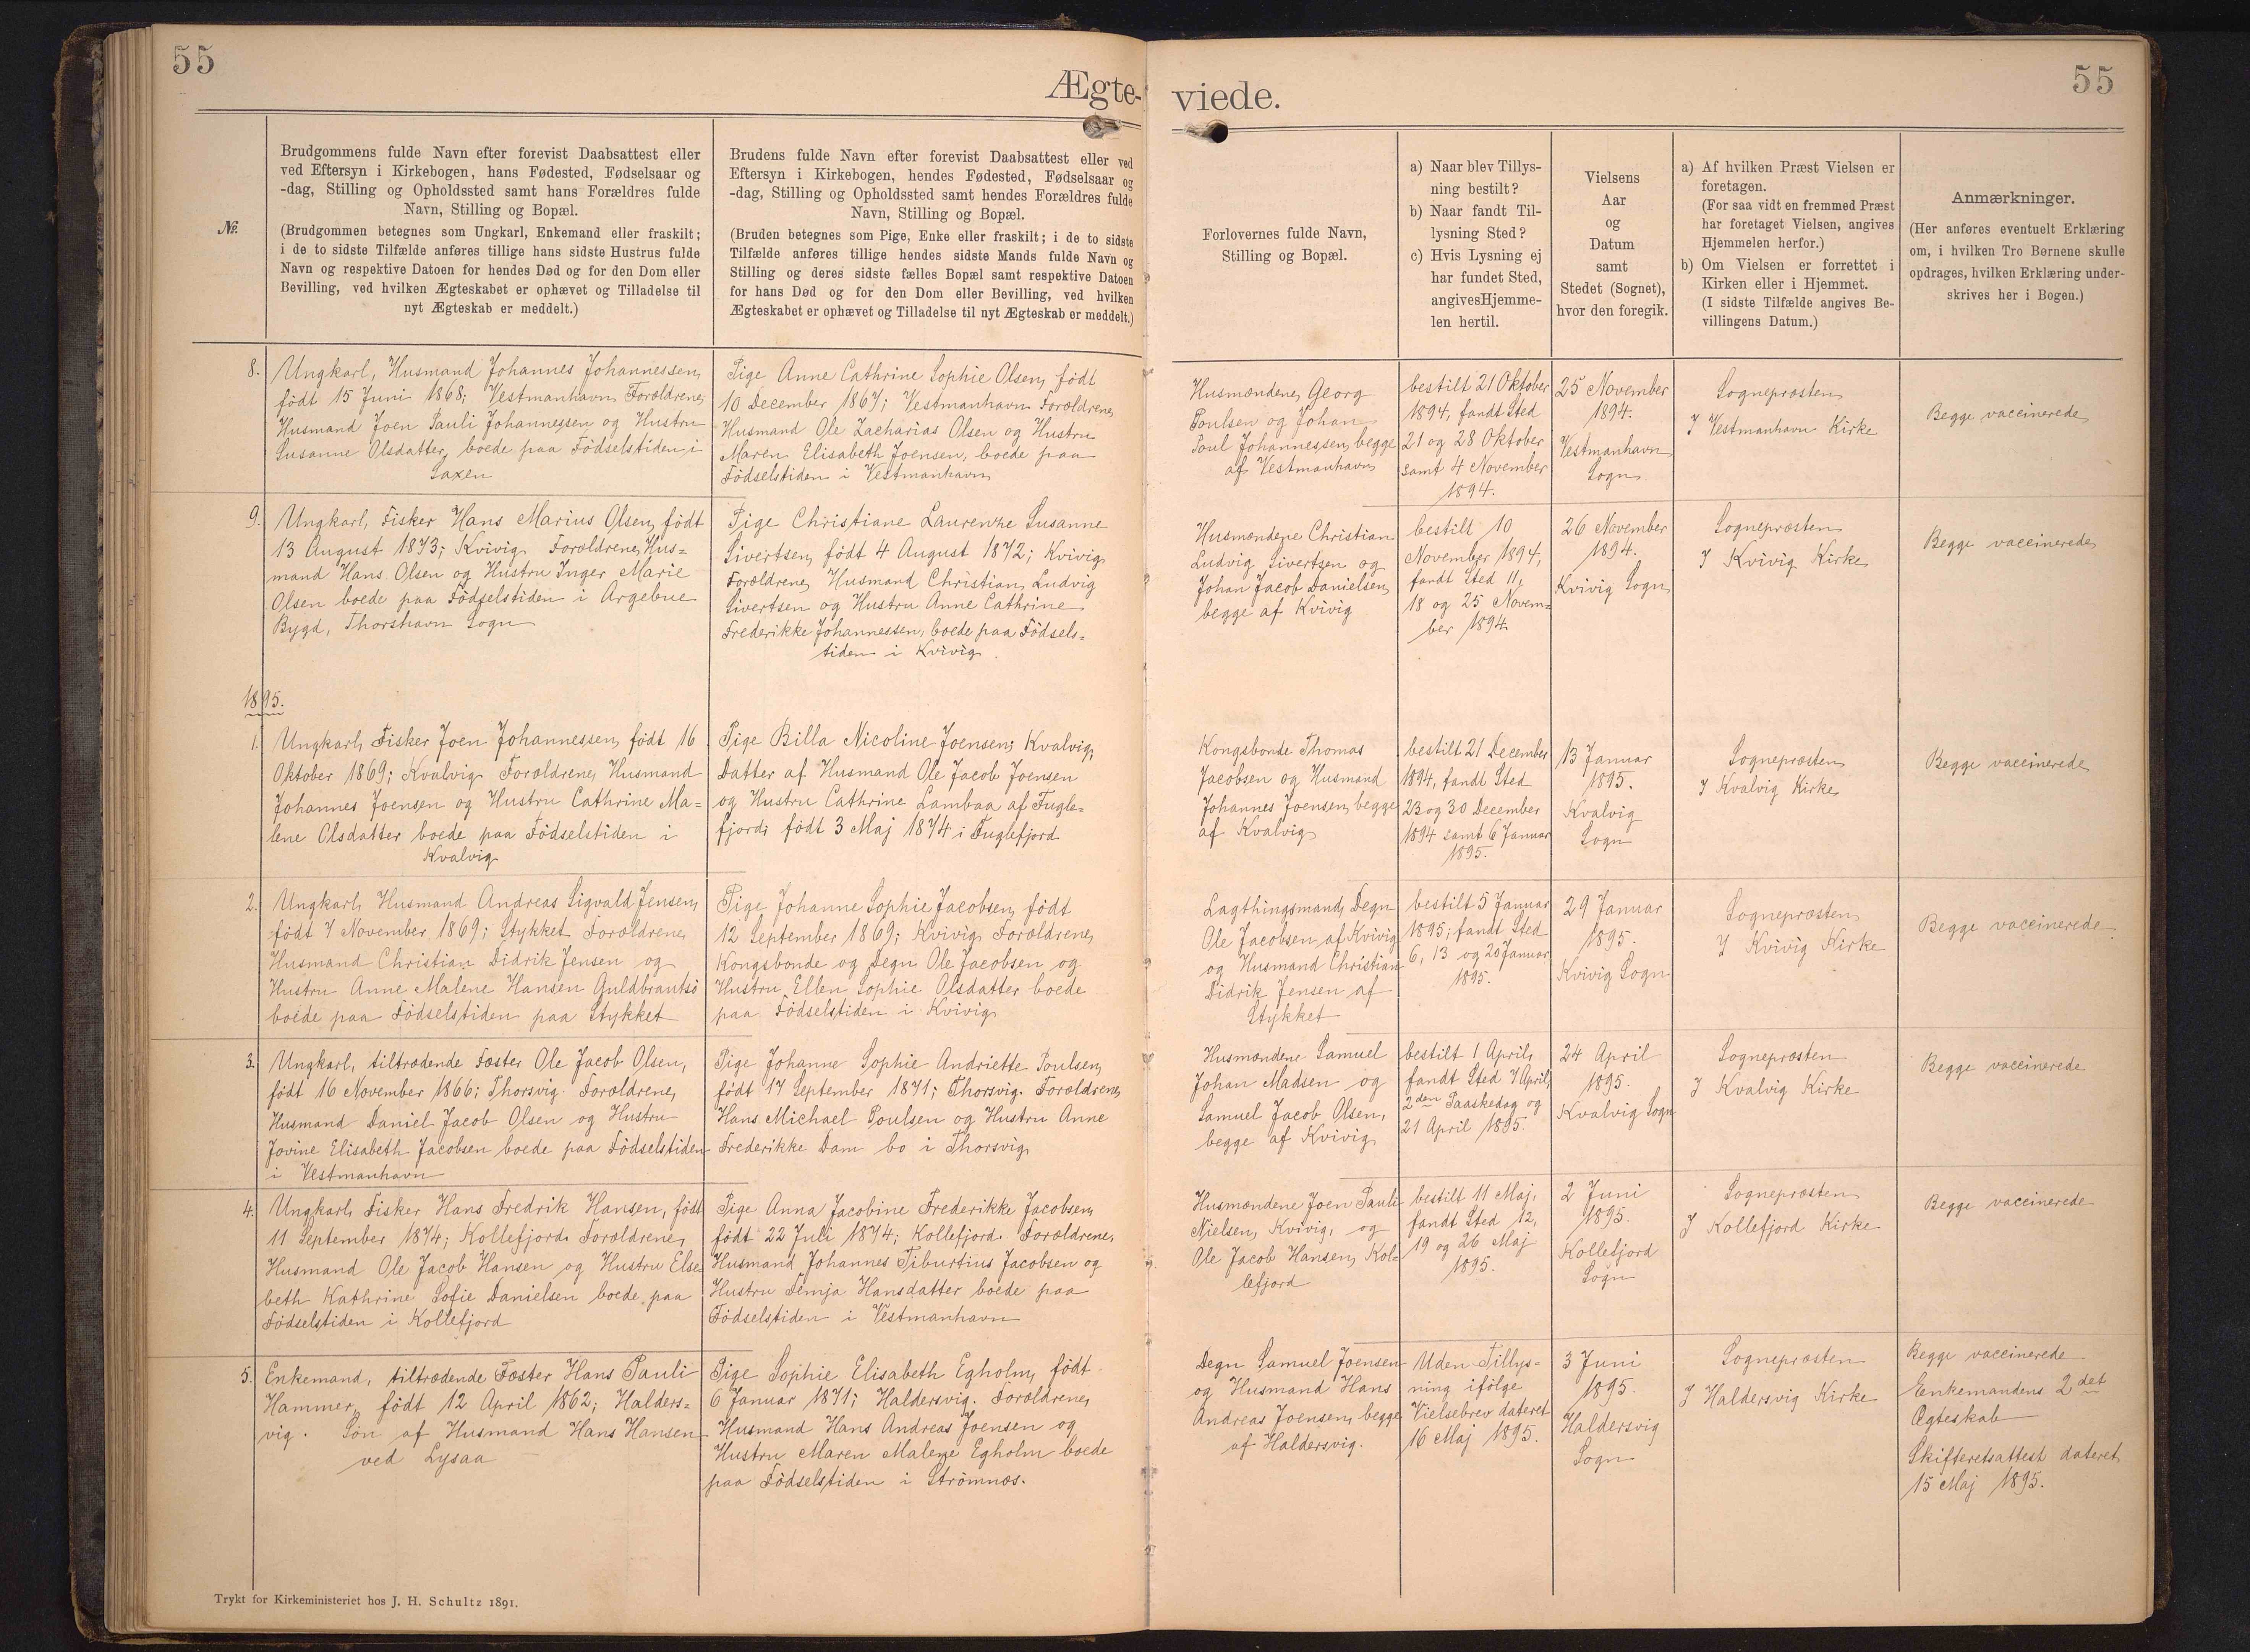 55
55
Ægte-
viede.
№
Brudgommens fulde Navn efter forevist Daabsattest eller
ved Eftersyn i Kirkebogen, hans Fødested, Fødselsaar og
-dag, Stilling og Opholdssted samt hans Forældres fulde
Navn, Stilling og Bopæl.
(Brudgommen betegnes som Ungkarl, Enkemand eller fraskilt;
i de to sidste Tilfælde anføres tillige hans sidste Hustrus fulde
Navn og respektive Datoen for hendes Død og for den Dom eller
Bevilling, ved hvilken Ægteskabet er ophævet og Tilladelse til
nyt Ægteskab er meddelt.)
Brudens fulde Navn efter forevist Daabsattest eller ved
Eftersyn i Kirkebogen, hendes Fødested, Fødselsaar og
-dag, Stilling og Opholdssted samt hendes Forældres fulde
Navn, Stilling og Bopæl.
(Bruden betegnes som Pige, Enke eller fraskilt; i de to sidste
Tilfælde anføres tillige hendes sidste Mands fulde Navn og
Stilling og deres sidste fælles Bopæl samt respektive Datoen
for hans Død og for den Dom eller Bevilling, ved hvilken
Ægteskabet er ophævet og Tilladelse til nyt Ægteskab er meddelt.)
Forlovernes fulde Navn,
Stilling og Bopæl.
a) Naar blev Tillys-
ning bestilt?
b) Naar fandt Til-
lysning Sted?
c) Hvis Lysning ej
har fundet Sted,
angivesHjemme-
len hertil.
Vielsens
Aar
og
Datum
samt
Stedet (Sognet),
hvor den foregik.
a) Af hvilken Præst Vielsen er
foretagen.
(For saa vidt en fremmed Præst
har foretaget Vielsen, angives
Hjemmelen herfor.)
b) Om Vielsen er forrettet i
Kirken eller i Hjemmet.
(I sidste Tilfælde angives Be-
villingens Datum.)
Anmærkninger.
(Her anføres eventuelt Erklæring
om, i hvilken Tro Børnene skulle
opdrages, hvilken Erklæring under-
skrives her i Bogen.)
8.
Ungkarl, Husmand Johannes Johannessen,
født 15 Juni 1868; Vestmanhavn. Forældrene,
Husmand Joen Pauli Johannessen og Hustru
Susanne Olsdatter, boede paa Fødselstiden i
Saxen
Pige Anne Cathrine Sophie Olsen, født
10 December 1867; Vestmanhavn. Forældrene,
Husmand Ole Zacharias Olsen og Hustru
Maren Elisabeth Joensen, boede paa
Fødselstiden i Vestmanhavn
Husmændene, Georg
Poulsen og Johan
Poul Johannessen, begge
af Vestmanhavn
bestilt 21 Oktober
1894, fandt Sted
21 og 28 Oktober
samt 4 November
1894.
25 November
1894.
Vestmanhavn
Sogn
Sognepræsten
I Vestmanhavn Kirke
Begge vaccinerede
9.
Ungkarl, Fisker Hans Marius Olsen, født
13 August 1873; Kvivig. Forældrene, Hus=
mand Hans Olsen og Hustru Inger Marie
Olsen boede paa Fødselstiden i Argebue
Bygd, Thorshavn Sogn
Pige Christiane Laurenze Susanne
Sivertsen, født 4 August 1872; Kvivig.
Forældrene, Husmand Christian Ludvig
Sivertsen og Hustru Anne Cathrine
Frederikke Johannessen, boede paa Fødsels=
tiden i Kvivig.
Husmændene Christian
Ludvig Sivertsen og
Johan Jacob Danielsen,
begge af Kvivig
bestilt 10
November 1894,
fandt Sted 11,
18 og 25 Novem=
ber 1894.
26 November
1894.
Kvivig Sogn
Sognepræsten
I Kvivig Kirke
Begge vaccinerede
1895.
1.
Ungkarl, Fisker Joen Johannessen, født 16
Oktober 1869; Kvalvig. Forældrene, Husmand
Johannes Joensen og Hustru Cathrine Ma=
lene Olsdatter boede paa Fødselstiden i
Kvalvig
Pige Billa Nicoline Joensen; Kvalvig,
Datter af Husmand Ole Jacob Joensen
og Hustru Cathrine Lambaa af Fugle=
fjord; født 3 Maj 1874 i Fuglefjord
Kongsbonde Thomas
Jacobsen og Husmand
Johannes Joensen, begge
af Kvalvig
bestilt 21 December
1894, fandt Sted
23 og 30 December
1894 samt 6 Januar
1895.
13 Januar
1895.
Kvalvig
Sogn
Sognepræsten
I Kvalvig Kirke
Begge vaccinerede
2.
Ungkarl, Husmand Andreas Sigvald Jensen,
født 7 November 1869; Stykket. Forældrene,
Husmand Christian Didrik Jensen og
Hustru Anne Malene Hansen Guldbrantsø
boede paa Fødselstiden paa Stykket
Pige Johanne Sophie Jacobsen, født
12 September 1869; Kvivig. Forældrene,
Kongsbonde og Degn Ole Jacobsen og
Hustru Ellen Sophie Olsdatter boede
paa Fødselstiden i Kvivig
Lagthingsmand, Degn
Ole Jacobsen af Kvivig
og Husmand Christian
Didrik Jensen af
Stykket
bestilt 5 Januar
1895; fandt Sted
6, 13 og 20 Januar
1895.
29 Januar
1895.
Kvivig Sogn
Sognepræsten
I Kvivig Kirke
Begge vaccinerede.
3.
Ungkarl, tiltrædende Fæster Ole Jacob Olsen,
født 16 November 1866; Thorsvig. Forældrene,
Husmand Daniel Jacob Olsen og Hustru
Jovine Elisabeth Jacobsen boede paa Fødselstiden
i Vestmanhavn
Pige Johanne Sophie Andriette Poulsen,
født 17 September 1871; Thorsvig. Forældrene,
Hans Michael Poulsen og Hustru Anne
Frederikke Dam bo i Thorsvig
Husmændene Samuel
Johan Madsen og
Samuel Jacob Olsen,
begge af Kvivig
bestilt 1 April,
fandt Sted 7 April,
2den Paaskedag og
21 April 1895.
24 April
1895.
Kvalvig Sogn
Sognepræsten
I Kvalvig Kirke
Begge vaccinerede
4.
Ungkarl, Fisker Hans Fredrik Hansen, født
11 September 1874; Kollefjord. Forældrene,
Husmand Ole Jacob Hansen og Hustru Else
beth Kathrine Sofie Danielsen boede paa
Fødselstiden i Kollefjord
Pige Anna Jacobine Frederikke Jacobsen,
født 22 Juli 1874; Kollefjord. Forældrene,
Husmand Johannes Tiburtius Jacobsen og
Hustru Semja Hansdatter boede paa
Fødselstiden i Vestmanhavn
Husmændene Joen Pauli
Nielsen, Kvivig, og
Ole Jacob Hansen, Kol=
lefjord
bestilt 11 Maj,
fandt Sted 12,
19 og 26 Maj
1895.
2 Juni
1895.
Kollefjord
Sogn
Sognepræsten
I Kollefjord Kirke
Begge vaccinerede
5.
Enkemand, tiltrædende Fæster Hans Pauli
Hammer, født 12 April 1862; Halders=
vig. Søn af Husmand Hans Hansen
ved Lysaa
Pige Sophie Elisabeth Egholm, født
6 Januar 1871; Haldersvig. Forældrene,
Husmand Hans Andreas Joensen og
Hustru Maren Malene Egholm boede
paa Fødselstiden i Strömnæs.
Degn Samuel Joensen
og Husmand Hans
Andreas Joensen, begge
af Haldersvig.
Uden Tillys=
ning ifølge
Vielsebrev dateret
16 Maj 1895.
3 Juni
1895.
Haldersvig
Sogn
Sognepræsten
I Haldersvig Kirke
Begge vaccinerede
Enkemandens 2det
Ægteskab
Skifteretsattest dateret
15 Maj 1895.
Trykt for Kirkeministeriet hos J. H. Schultz 1891.